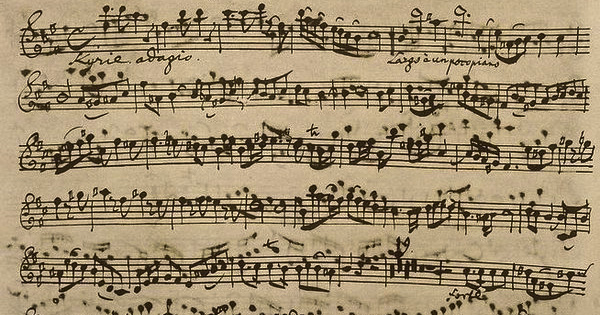 Kyrie. adagio. Largo è un poco piano
tr
forte